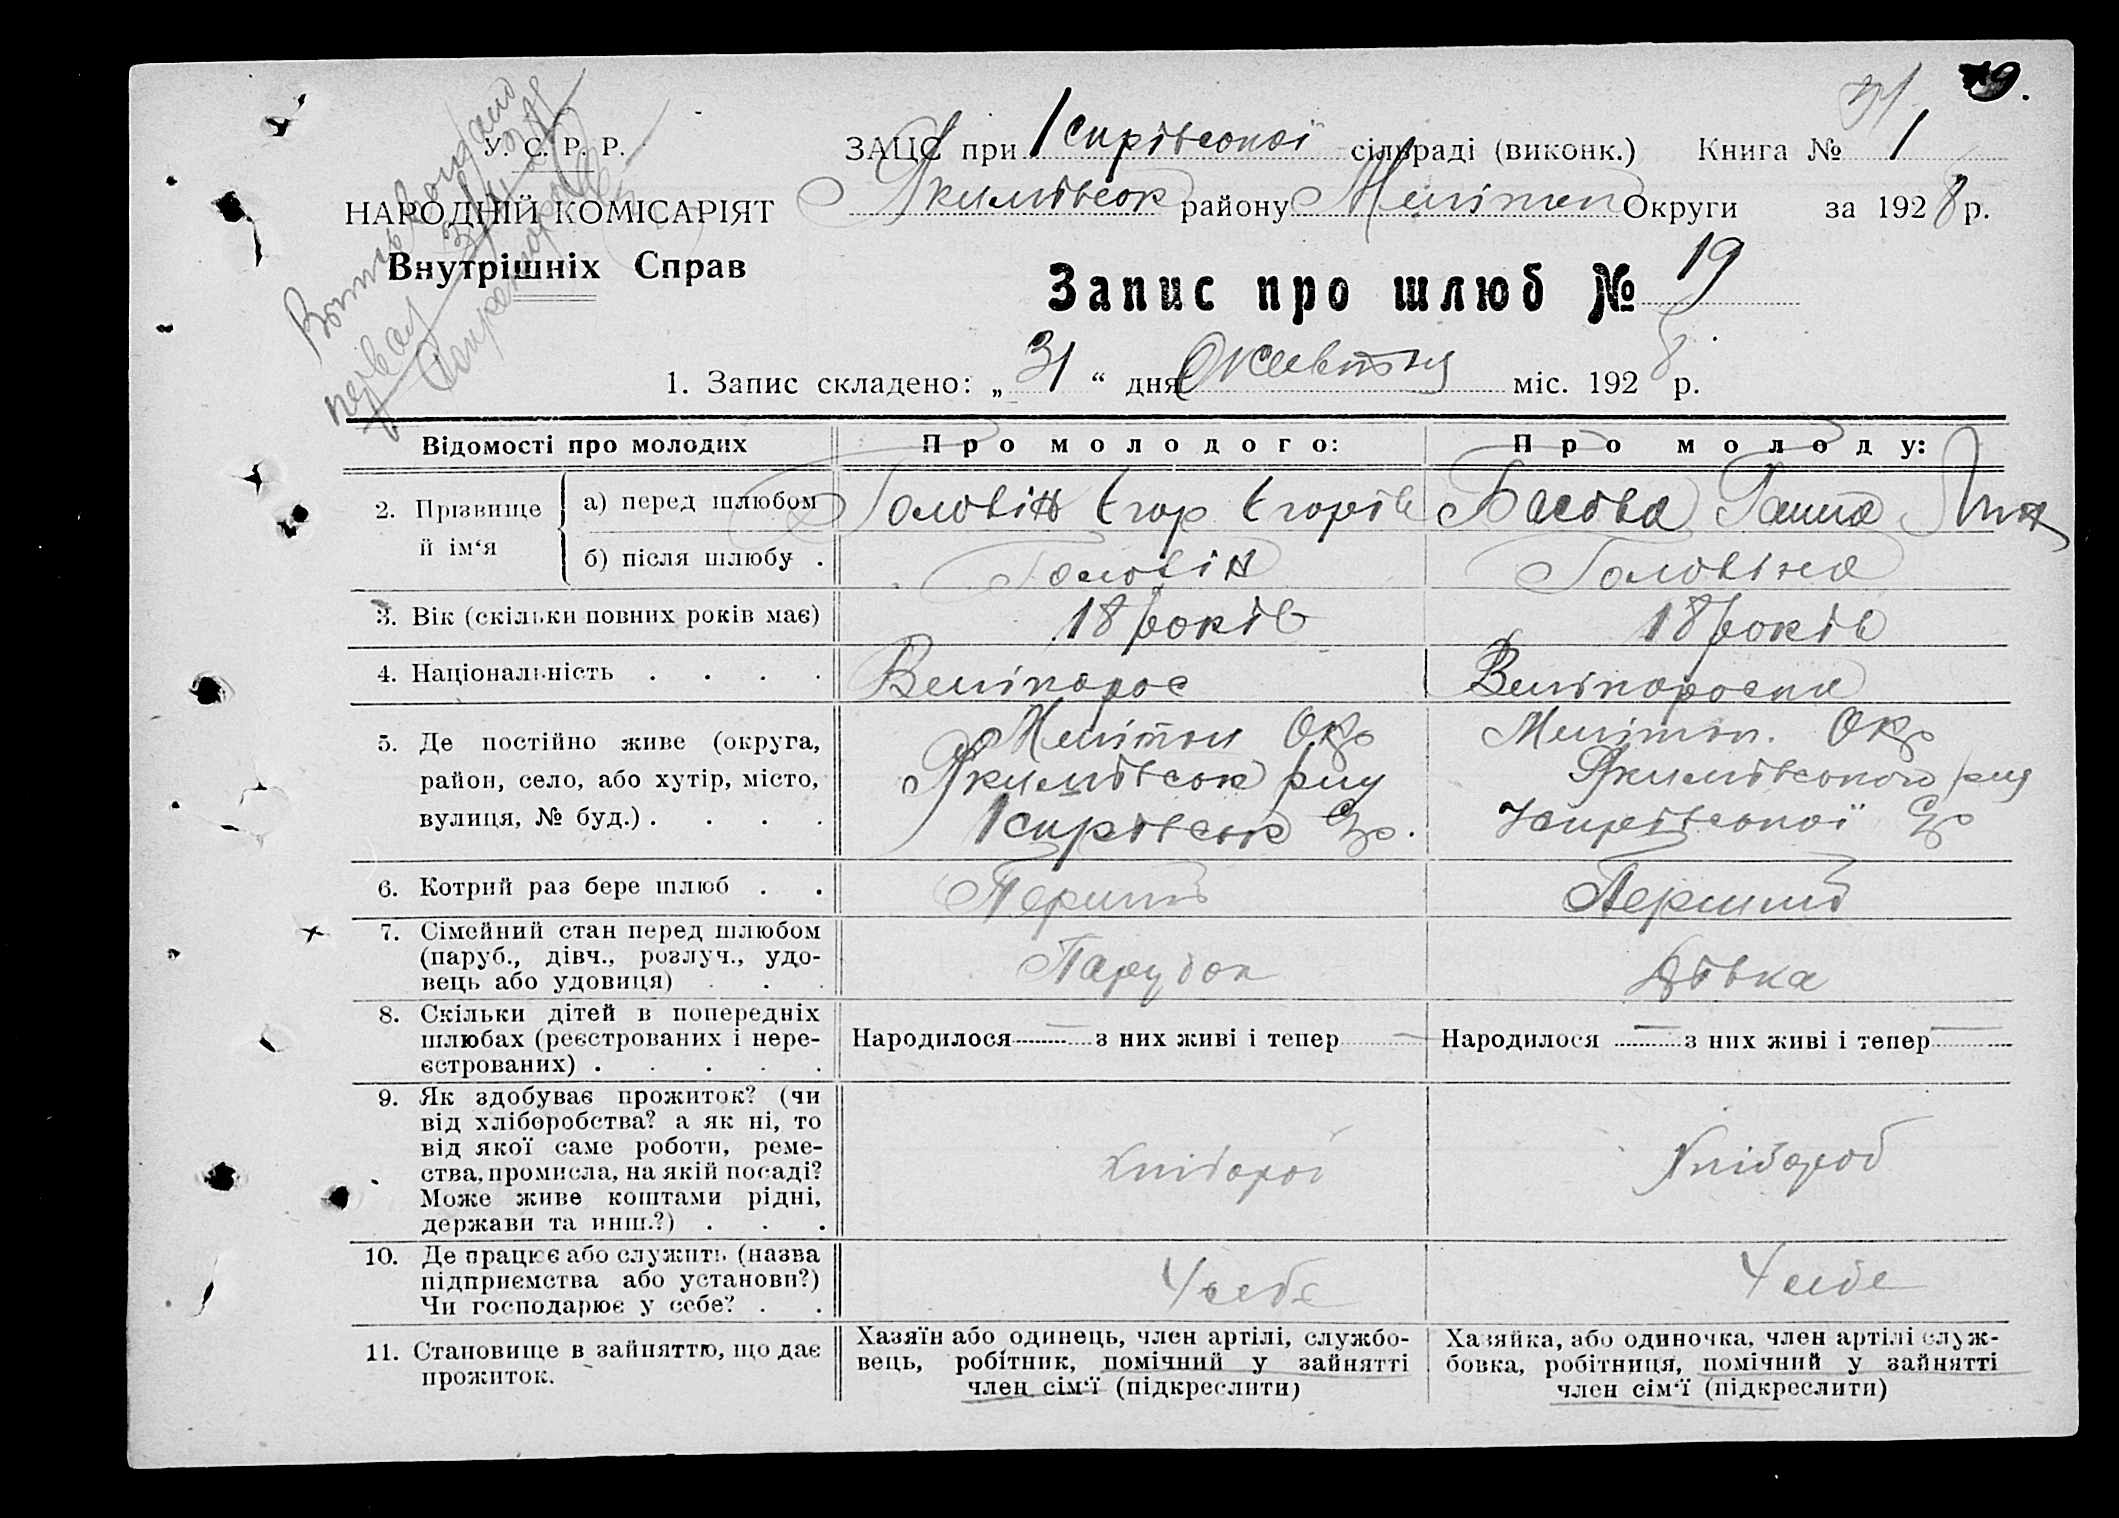 31 19.
У. С. Р. Р.
НАРОДНІЙ КОМІСАРІЯТ
Внутрішніх Справ
ЗАЦС при сільраді (виконк.) Книга № 1
Якимівськ району Меліт Округи за 1928 р.
Запис про шлюб № 19
1. Запис складено: „ 31 “ дня міс. 1928 р.
Відомості про молодих
Про молодого:
Про молоду:
2. Прізвище й ім‘я
а) перед шлюбом
Головін Єгор Єгорів
Басова Ганна
б) після шлюбу .
Головін
Головіна
3. Вік (скільки повних років має)
18 років
18 років
4. Національність . . . .
Велікорос
Велікороска
5. Де постійно живе (округа,
район, село, або хутір, місто,
вулиця, № буд.) . . . .
Меліт Окр
Якимівськ
Меліт. Окр
Якимівського
6. Котрий раз бере шлюб . .
Перший
Перший
7. Сімейний стан перед шлюбом
(паруб., дівч., розлуч., удо-
вець або удовиця) . . .
Парубок
Дівка
8. Скільки дітей в попередніх
шлюбах (реєстрованих і нере-
єстрованих) . . . . .
Народилося — з них живі і тепер —
Народилося — з них живі і тепер —
9. Як здобуває прожиток? (чи
від хліборобства? а як ні, то
від якої саме роботи, реме-
ства, промисла, на якій посаді?
Може живе коштами рідні,
держави та инш.?) . . .
хлібороб
Хлібороб
10. Де працює або служить (назва
підприємства або установи?)
Чи господарює у себе? . .
У себе
У себе
11. Становище в зайняттю, що дає
прожиток.
Хазяїн або одинець, член артілі, службо-
вець, робітник, помічний у зайнятті
член сім‘ї (підкреслити)
Хазяйка, або одиночка, член артілі служ-
бовка, робітниця, помічний у зайнятті
член сім‘ї (підкреслити)